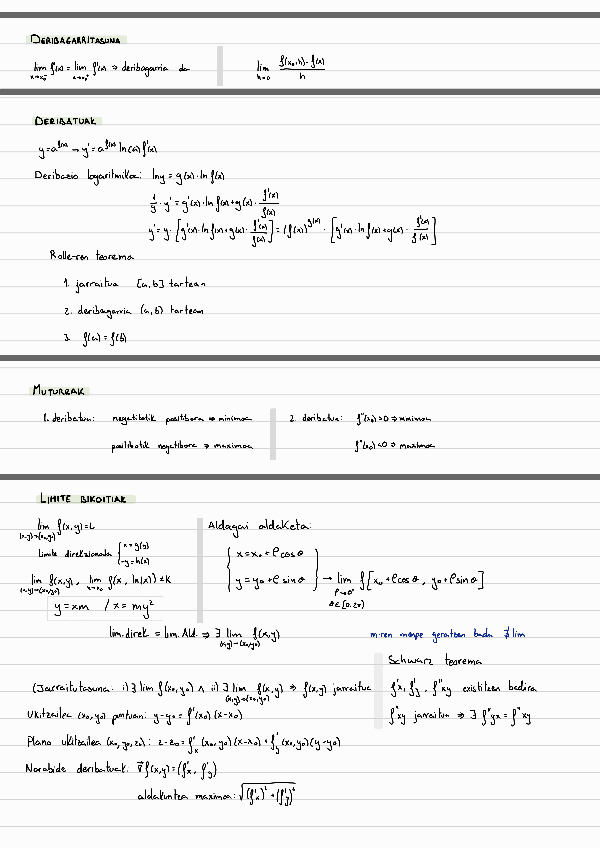 DERIBAGARRITASUNA
lim x→x₀⁻ f'(x) = lim x→x₀⁺ f'(x) ⇒ deribagarria da
lim h→0 f(x₀+h) - f(x) / h
DERIBATUAK
y = a^f(x) → y' = a^f(x) ln(a) f'(x)
Deribazio logaritmikoa: ln y = g(x) · ln f(x)
1/y · y' = g'(x) · ln f(x) + g(x) · f'(x)/f(x)
y' = y · [g'(x) · ln f(x) + g(x) · f'(x)/f(x)] = (f(x))^g(x) · [g'(x) · ln f(x) + g(x) · f'(x)/f(x)]
Rolle-ren teorema
1. jarraitua [a,b] tartean
2. deribagarria (a,b) tartean
3. f(a) = f(b)
MUTURRAK
1. deribatua: negatibotik positibora ⇒ minimoa
positibotik negatibora ⇒ maximoa
2. deribatua: f''(x₀) > 0 ⇒ minimoa
f''(x₀) < 0 ⇒ maximoa
LIMITE BIKOITZAK
lim (x,y)→(x₀,y₀) f(x,y) = L
limite direkzionala { x = g(y)
y = h(x)
lim (x,y)→(x₀,y₀) f(x,y), lim x→x₀ f(x, h(x)) = K
y = xm / x = my²
Aldagai aldaketa:
{ x = x₀ + ρ cos θ
y = y₀ + ρ sin θ } → lim ρ→0⁺ f[x₀ + ρ cos θ, y₀ + ρ sin θ]
θ ∈ [0, 2π)
lim. direk = lim. Ald. ⇒ ∃ lim (x,y)→(x₀,y₀) f(x,y)
m-ren menpe geratzen bada ∄ lim
Schwarz teorema
f'x, f'y, f''xy existitzen badira
f''xy jarraitua ⇒ ∃ f''yx = f''xy
(Jarraitutasuna: i) ∃ lim f(x₀,y₀) ∧ ii) ∃ lim (x,y)→(x₀,y₀) f(x,y) ⇒ f(x,y) jarraitua
Ukitzailea (x₀,y₀) puntuan: y - y₀ = f'(x₀)(x - x₀)
Plano ukitzailea (x₀,y₀,z₀): z - z₀ = f'x (x₀,y₀)(x - x₀) + f'y (x₀,y₀)(y - y₀)
Norabide deribatuak: ∇f(x,y) = (f'x, f'y)
aldakuntza maximoa: √(f'x)² + (f'y)²